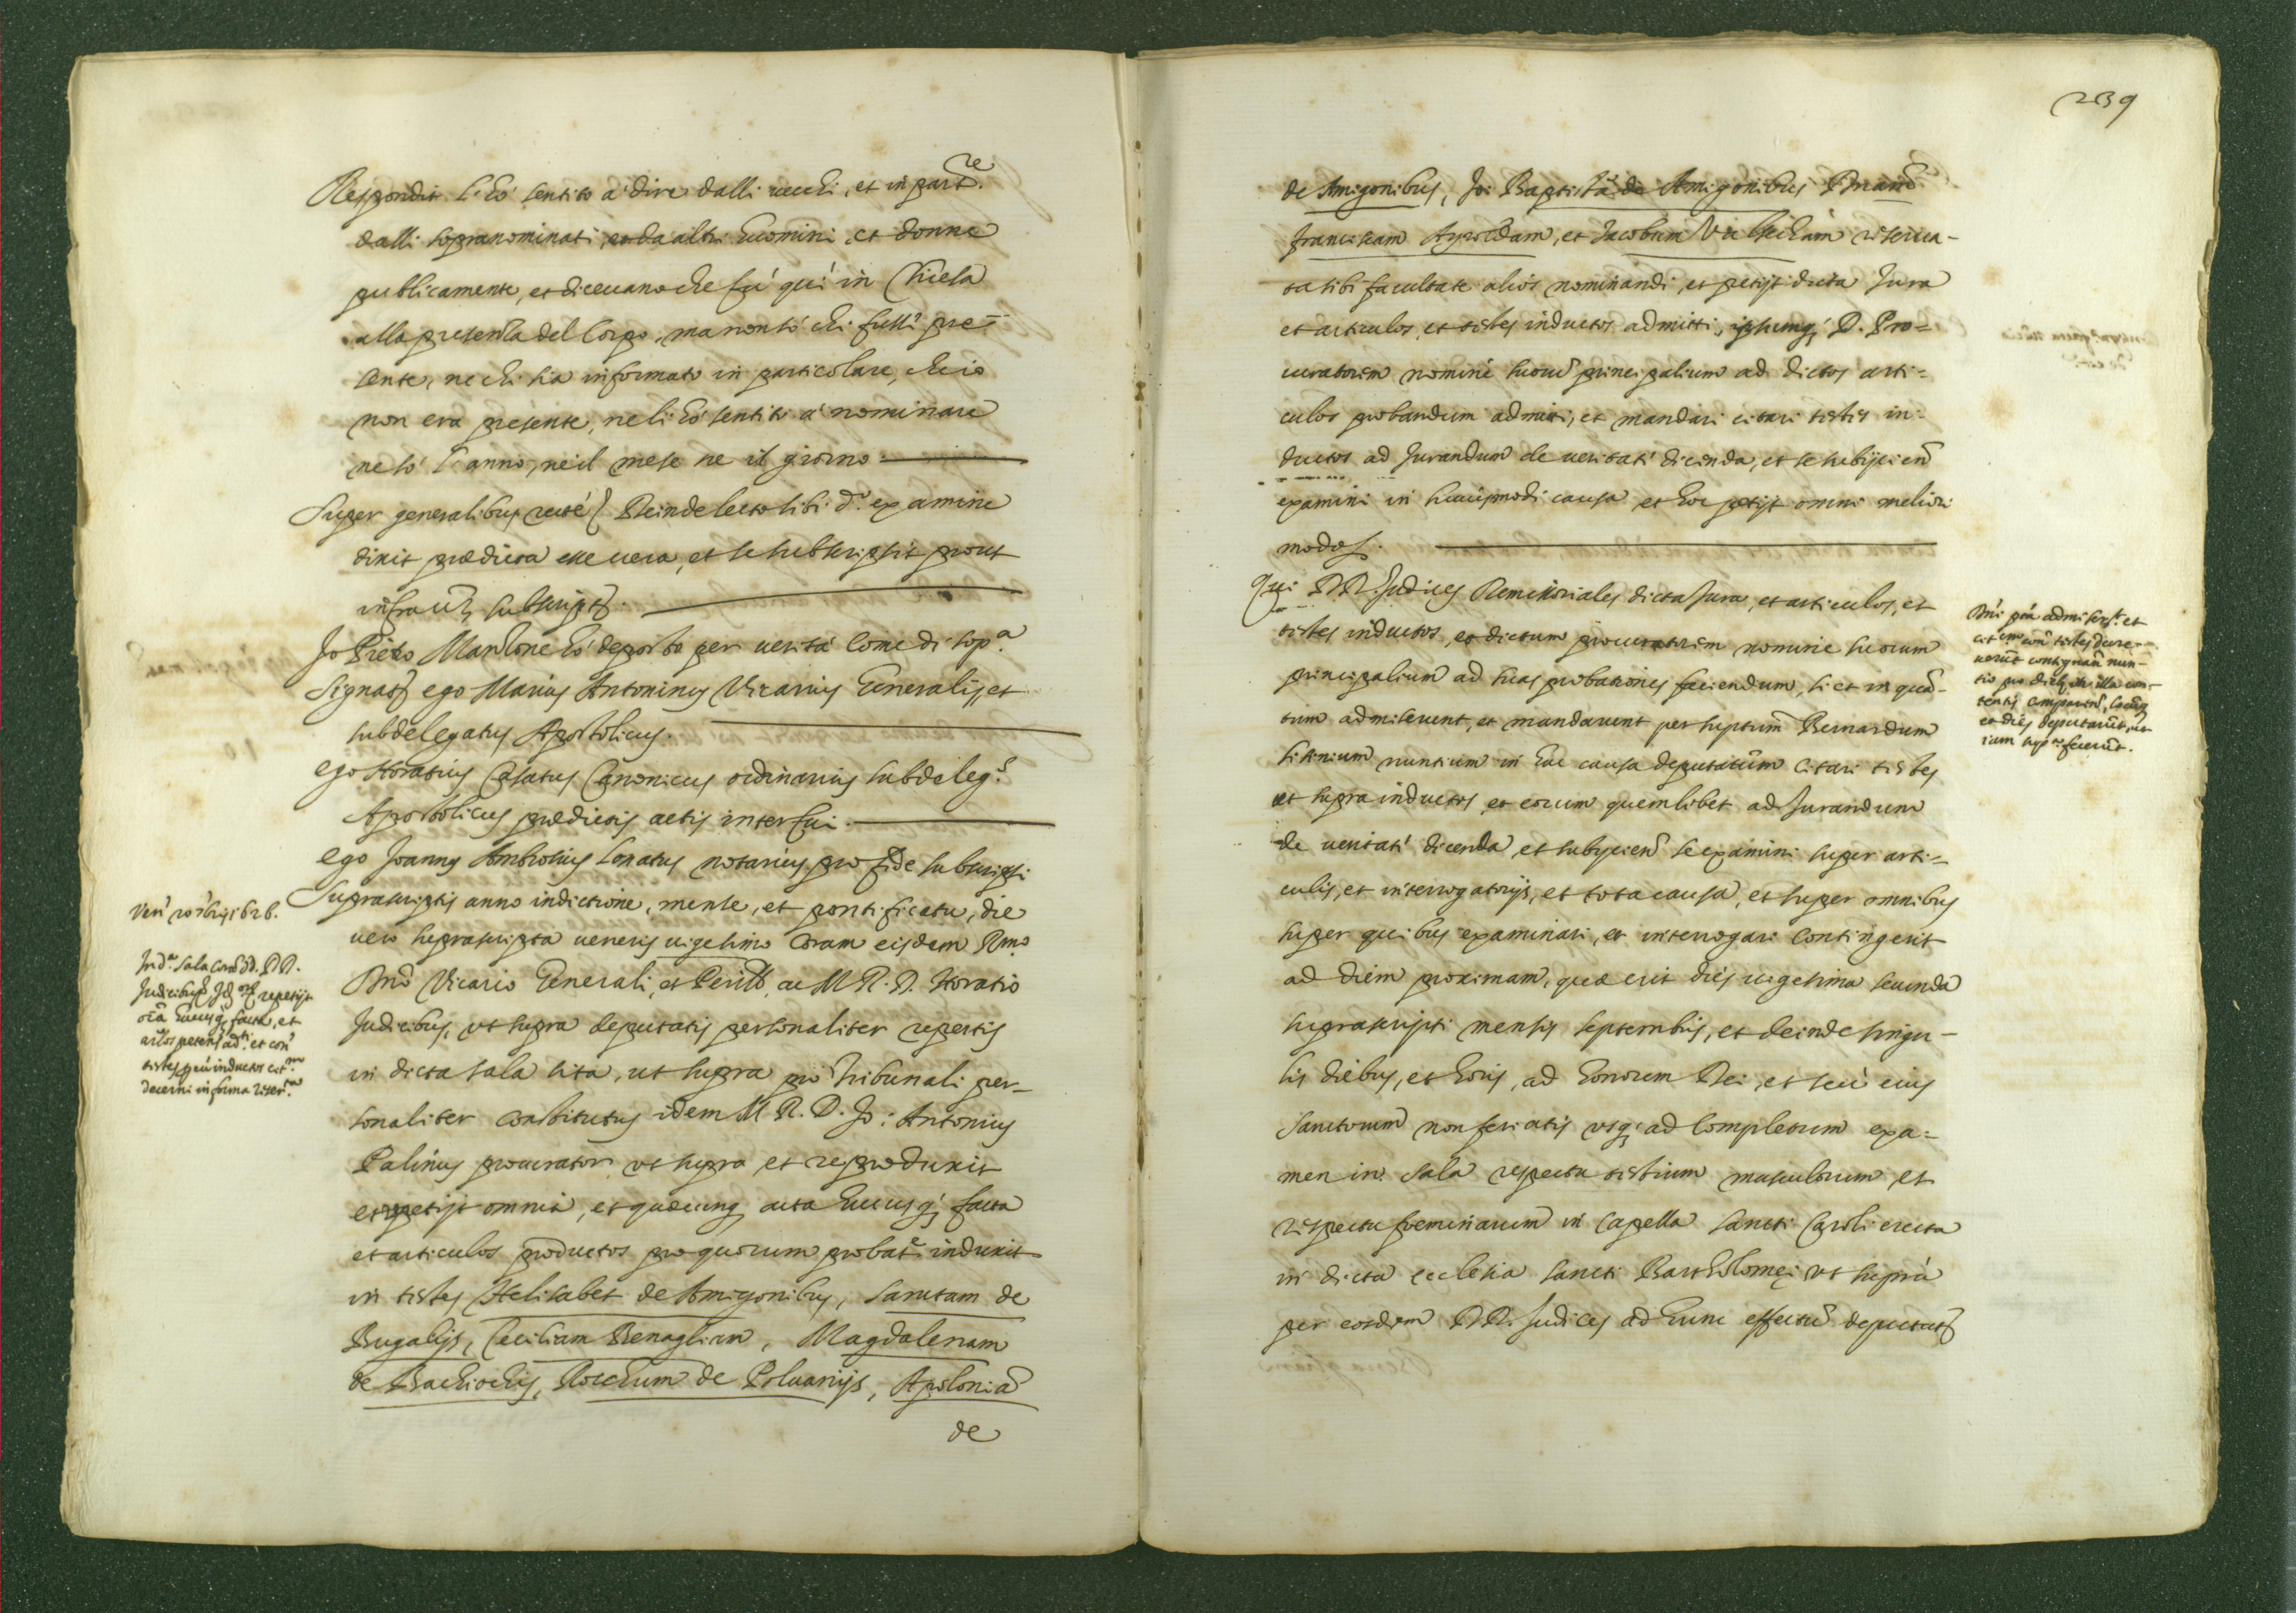 Respondit l'hò sentito à dire dalli vecchi, et in part.re
dalli sopranominati, et da altri huomini, et donne
publicamente, et dicevano che fù quì in Chiesa
alla presenza del Corpo, ma non sò chi fusse pre=
sente, ne chi sia informato in particolare, che io
non era presente, ne li hò sentiti à nominare
ne sò l'anno, ne il mese ne il giorno
Super generalibus recté Deinde lecto sibi d.o examine
dixit prædicta esse vera, et se subscripsit prout
infra subscript.
Jo Pietro hò deposto per verità come di sop.a
Signat ego Marius Antoninus Vicarius Generalis, et
subdelegatus Apostolicus.
ego Horatius Casatus Canonicus ordinarius subdeleg.s
Apostolicus prædictis actis interfui.
ego Joannes Ambrosius Lonatus notarius pro fide subscripsi
Suprascriptis anno indictione, mense, et pontificatu, die
vero suprascripta veneris vigesimo Coram eisdem Rmo
Dno Vicario Generali, et Perill. ac M R. D. Horatio
Judicibus, ut supra deputatis personaliter repertis
in dicta sala sita, ut supra pro Tribunali per-
sonaliter constitutus idem M R. D. Jo: Antonius
Palinus procurator ut supra et reproduxit
et repetijt omnia, et quæcunq acta hucusq; facta
et articulos productos pro quorum probat.e induxit
in testes Helisabet de Amigonibus, Sanctam de
Bugalijs, Ceciliam Benagliam, Magdalenam
de Bachiochis, Rocchum de Poluarijs, Apoloniã
de
Ven.
Judicibus
239
de Amigonibus, Jo: Baptistã de Amigonibus
franciscam, et Jacobum reserua-
ta sibi facultate alios nominandi, et petijt dicta Jura
et articulos, et testes inductos admitti, ipsumq; D. Pro=
curatorem nomine suorũ principalium ad dictos arti=
culos probandum admitti, et mandari citari testes in-
ductos ad Jurandum de veritate dicenda, et se subijciend
examini in huiusmodi causa et hoc petijt omni meliori
modo.
Qui DD. Judices Remissoriales dicta Jura, et articulos, et
testes inductos, et dictum procuratorem nomine suorum
principalium ad suas probationes faciendum, si et in quã-
tum admiserunt, et mandarunt per Bernardum
nuntium in hac causa deputatum citari testes
ut supra inductos, et eorum quemlibet ad Jurandum
de veritate dicenda et subyciend se examini super arti=
culis, et interrogatorijs, et tota causa, et super omnibus
super quibus examinari, et interrogari contingerit
ad diem proximam, quæ erit dies vigesima secunda
suprascripti mensis septembris, et deinde singu-
lis diebus, et horis, ad honorem Dei, et seu eius
Sanctorum non feriatis usq; ad completum exa=
men in sala respectu testium masculorum, et
respectu foeminarum in Capella Sancti Caroli erecta
in dicta ecclesia Sancti Bartholomęi ut supra
per eosdem DD. Judices ad hunc effectũ deputat